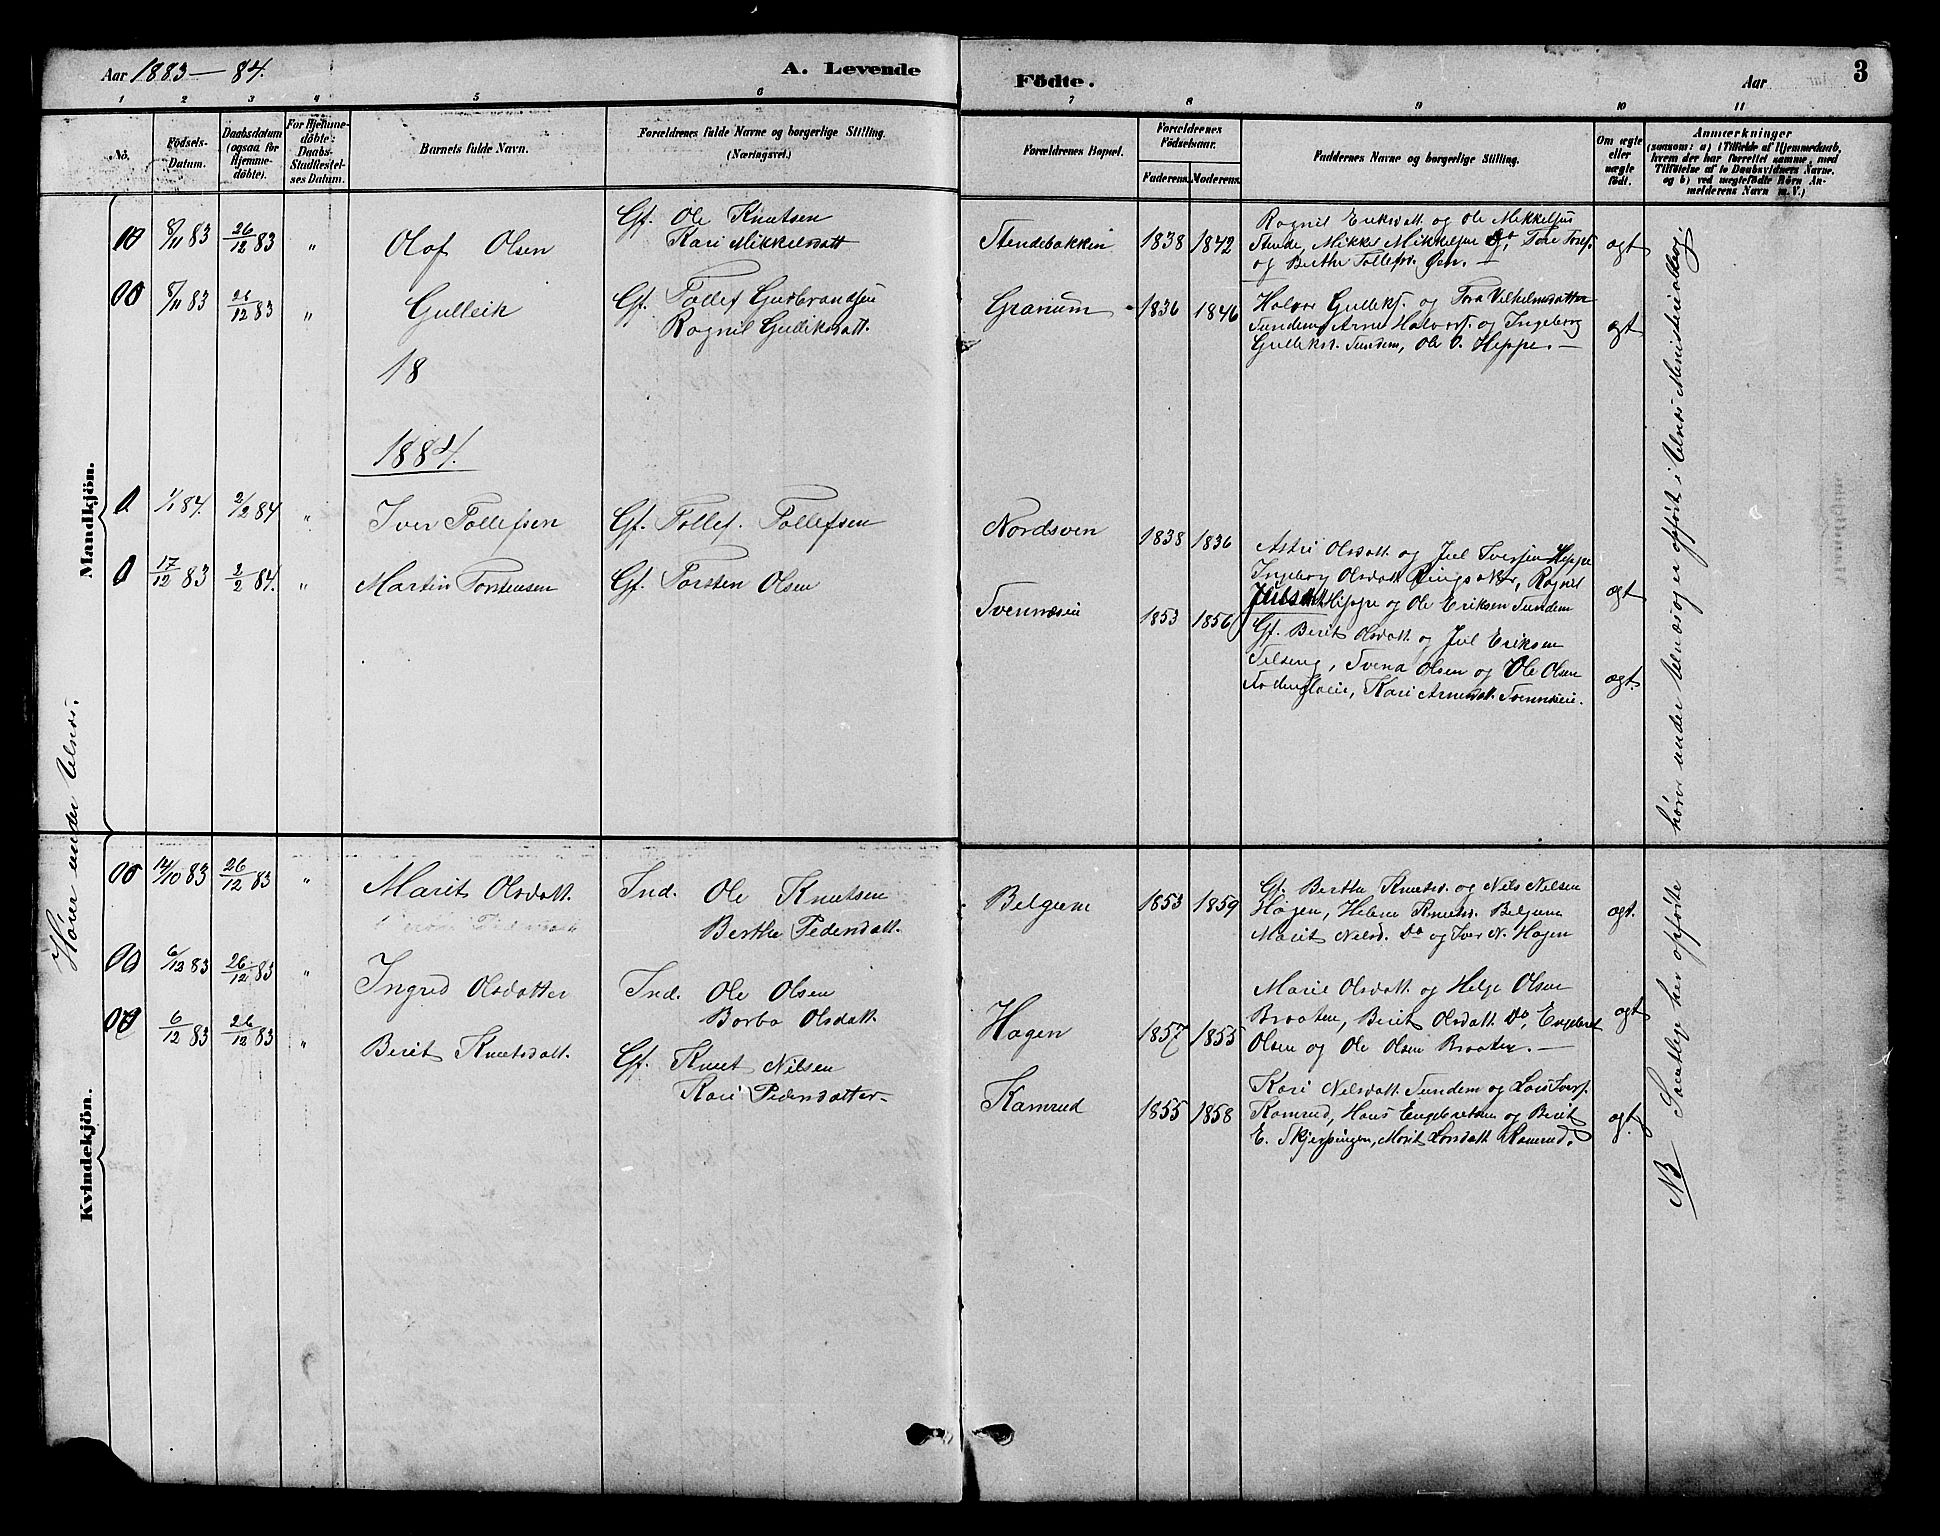 Aar 1883–84.
A. Levende
Födte.
Aar
3
1 2 3 4 5 6 7 8 9 10 11
No.
Födsels-Datum.
Daabsdatum (ogsaa for Hjemmedöbte).
For Hjemmedöbte: Daabs-Stadfestelses Datum.
Barnets fulde Navn.
Forældrenes fulde Navne og borgerlige Stilling. (Næringsvei.)
Forældrenes Bopæl.
Forældrenes Födselsaar.
Faderens. Moderens.
Faddernes Navne og borgerlige Stilling.
Om ægte eller uægte födt.
Anmærkninger
(saasom: a) i Tilfælde af Hjemmedaab, hvem der har forrettet samme, med Tilföielse af to Daabsvidners Navne, og b) ved uægtefödte Börn Anmelderens Navn m. V.)
Mandkjön.
8/11 83 26/12 83 " Olaf Olsen Gf. Ole Knutsen
Kari Mikkelsdatt
Stendebakken 1838 1842
Rognil Eriksdatt. og Ole Mikkelsen
Stende, Mikkel Mikkelsen Do, Tore
og Berthe Tollefsd. Øen. —
ægt
8/11 83 26/12 83 " Gulleik Gf. Tollef Gudbrandsen
Rognil Gulliksdatt.
Granum 1836 1846
Halvor Gulleksf. og Tora Vilhelmsdatter
Sundem, Arne Halvorsf. og Ingeborg
Gulleksd. Sundem, Ole O. Hippe. —
ægt
18
1884.
1/1 84. 2/2 84 " Iver Tollefsen Gf. Tollef. Tollefsen
Nordsven 1838 1836
Astri Olsdatt. og Juel Iversen Hippe
Ingeborg Olsdatt. Ringsaker, Rognil
Julsdatt Hippe og Ole Eriksen Sundem
ægt
17/12 83 2/2 84. " Martin Torstensen Gf. Torsten Olsen
Svennæseie 1853 1856
Gf. Berit Olsdatt. og Juel Eriksen
Svend Olsen og Ole Olsen
Kari Arnesdatt. Svennæseie.
ægt.
Hører under Ulnæs.
Kvindekjön.
14/10 83 26/12 83 " Marit Olsdatt. Ind. Ole Knutsen
Berthe Pedersdatt.
Belgum 1853 1859
Gf. Berthe Knutsd. og Nils Nilsen
Hagen, Helene Knutsd. Belgum
Marit Nilsd. Do og Iver N. Hagen
ægt.
6/12 83 26/12 83 " Ingrid Olsdatter Ind. Ole Olsen
Barbo Olsdatt.
Hagen 1857 1855
Marie Olsdatt. og Helge Olsen
Braaten, Berit Olsdatt. Do, Engebret
Olsen og Ole Olsen Braaten. —
ægt
6/12 83 26/12 83 " Berit Knutsdatt. Gf. Knut Nilsen
Kari Pedersdatter
Kamrud 1855 1858
Kari Nilsdatt. Sundem og Lars Iversf.
Kamrud, Hans Engebretsen og Berit
E. Skjerpingen, Marit Larsdatt Kamrud.
ægt.
NB Samtlige her opførte hører under Ulnæs og er opført i Ulnæs Ministerialbog.